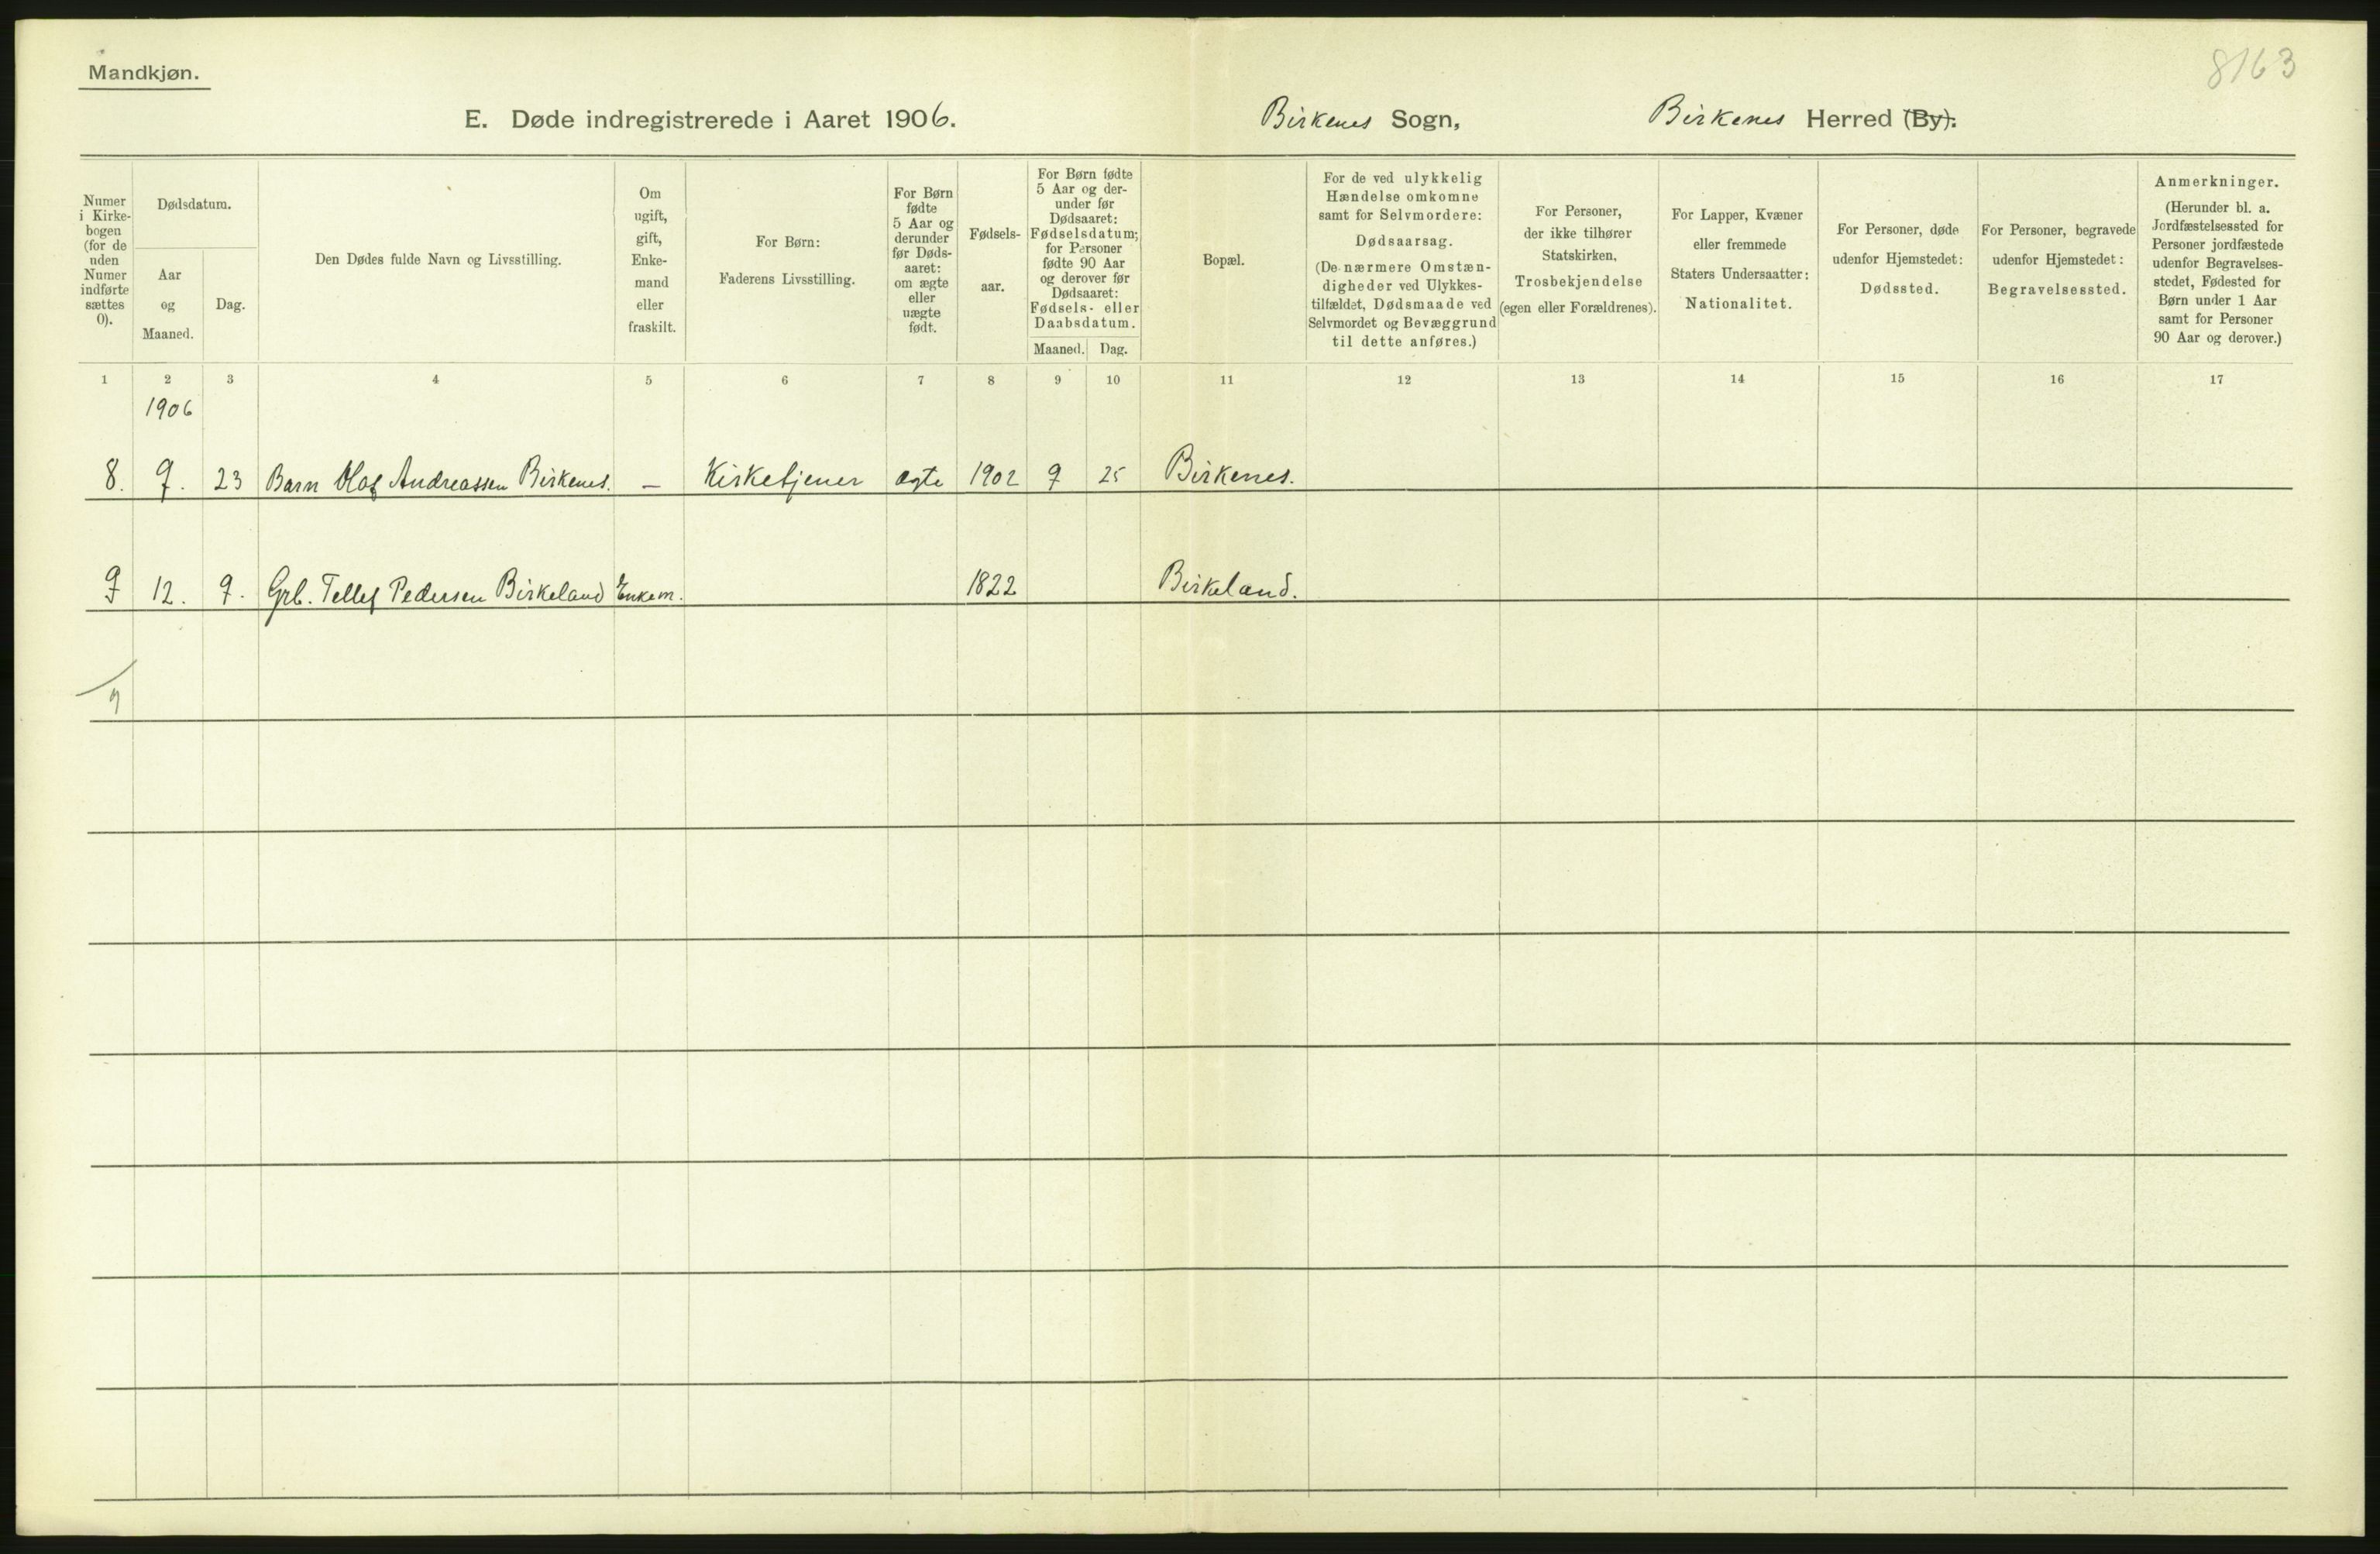 Mandkjøn.
8163
E. Døde indregistrerede i Aaret 1906.
Birkenes Sogn,
Birkenes Herred (By).
Numer i Kirke-bogen (for de uden Numer indførte sættes 0).
Dødsdatum.
Aar og Maaned.
Dag.
Den Dødes fulde Navn og Livsstilling.
Om ugift, gift, Enke-mand eller fraskilt.
For Børn: Faderens Livsstilling.
For Børn fødte 5 Aar og derunder før Døds-aaret: om ægte eller uægte født.
Fødsels-aar.
For Børn fødte 5 Aar og der-under før Dødsaaret: Fødselsdatum; for Personer fødte 90 Aar og derover før Dødsaaret: Fødsels- eller Daabsdatum.
Maaned. Dag.
Bopæl.
For de ved ulykkelig Hændelse omkomne samt for Selvmordere: Dødsaarsag. (De nærmere Omstæn-digheder ved Ulykkes-tilfældet, Dødsmaade ved Selvmordet og Bevæggrund til dette anføres.)
For Personer, der ikke tilhører Statskirken, Trosbekjendelse (egen eller Forældrenes).
For Lapper, Kvæner eller fremmede Staters Undersaatter: Nationalitet.
For Personer, døde udenfor Hjemstedet: Dødssted.
For Personer, begravede udenfor Hjemstedet: Begravelsessted.
Anmerkninger. (Herunder bl. a. Jordfæstelsessted for Personer jordfæstede udenfor Begravelses-stedet, Fødested for Børn under 1 Aar samt for Personer 90 Aar og derover.)
1 2 3 4 5 6 7 8 9 10 11 12 13 14 15 16 17
1906
8. 9. 23 Barn Olaf Andreassen Birkenes. — Kirketjener ægte 1902 9 25 Birkenes.
9 12. 9. Grb. Tellef Pedersen Birkeland Enkem. 1822 Birkeland.
9